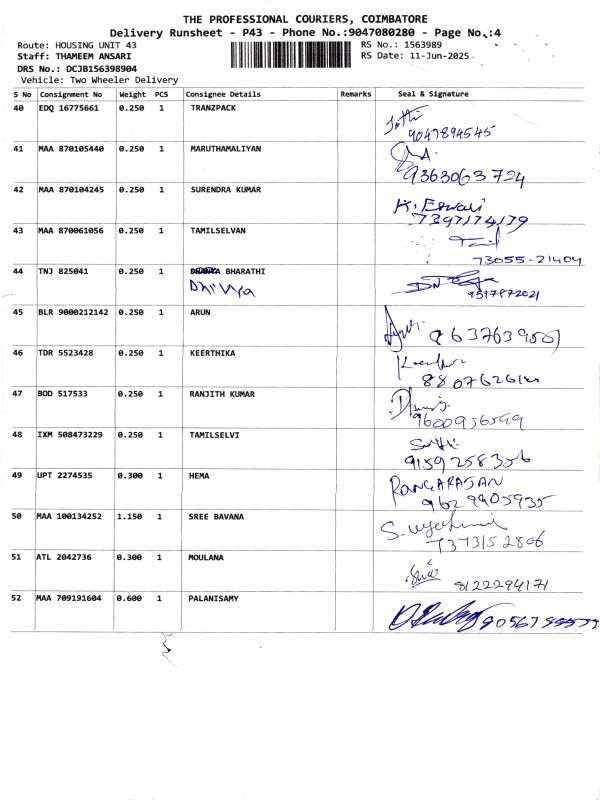 THE PROFESSIONAL COURIERS, COIMBATORE
Delivery Runsheet - P43 - Phone No.:9047080280 - Page No.:4
Route: HOUSING UNIT 43
RS No.: 1563989
Staff: THAMEEM ANSARI
RS Date: 11-Jun-2025
DRS No.: DCJB156398904
Vehicle: Two Wheeler Delivery
S No Consignment No Weight PCS Consignee Details Remarks Seal & Signature
40 EDQ 16775661 0.250 1 TRANZPACK
9047894545
41 MAA 870105440 0.250 1 MARUTHAMALIYAN
9363063724
42 MAA 870104245 0.250 1 SURENDRA KUMAR K. Eswari
7397174179
43 MAA 870061056 0.250 1 TAMILSELVAN Tamil
73055-21404
44 TNJ 825041 0.250 1 BHARATHI
Dhivya
45 BLR 9000212142 0.250 1 ARUN
46 TDR 5523428 0.250 1 KEERTHIKA
47 BOD 517533 0.250 1 RANJITH KUMAR
9600956599
48 IXM 508473229 0.250 1 TAMILSELVI
9159258356
49 UPT 2274535 0.300 1 HEMA RANGARASAN
9629905935
50 MAA 100134252 1.150 1 SREE BAVANA
7373152806
51 ATL 2042736 0.300 1 MOULANA
8122294171
52 MAA 709191604 0.600 1 PALANISAMY